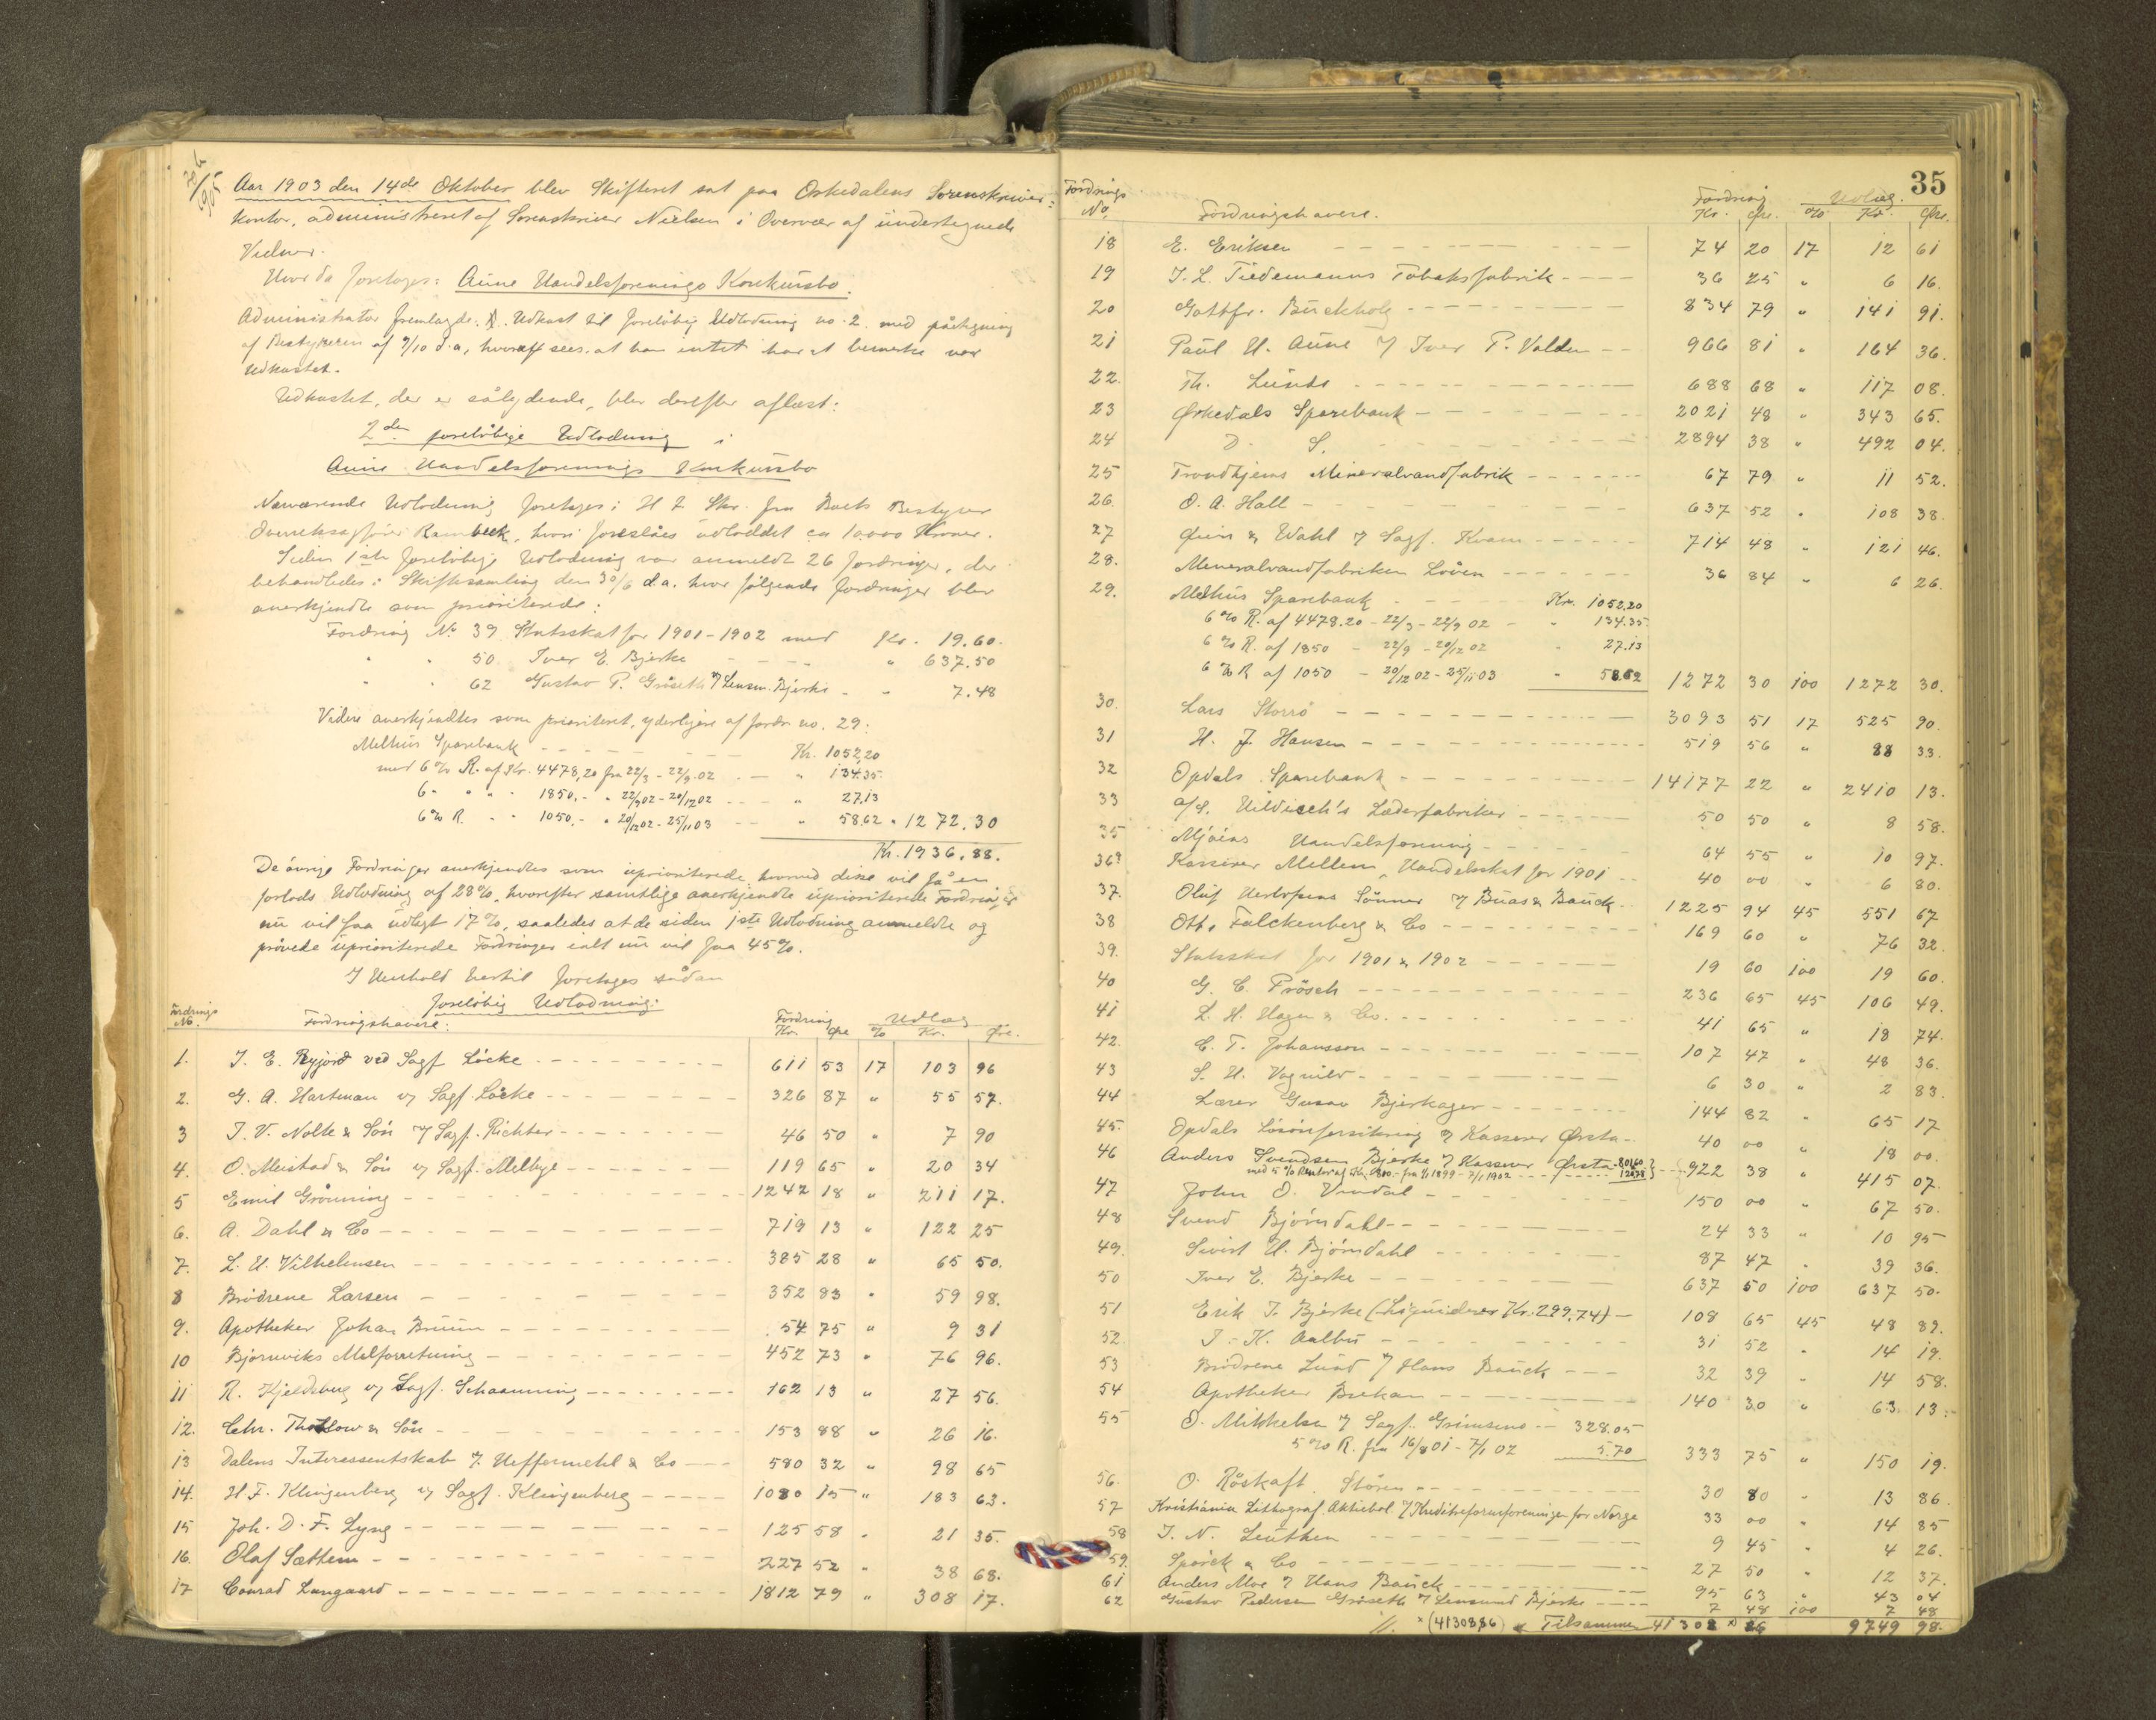 Aar 1903 den 14de Oktober blev Skifteret sat paa Orkedalens Sorenskriver-
kontor, administreret af Sorenskriver Nielsen i Overvær af undertegnede
Vidner.
Hvor da foretoges: Aune Handelsforenings Konkursbo.
Administrator fremlagde. Udkast til foreløbig Udlodning no. 2. med påtegning
af Bestyreren af 9/10 d.a, hvoraf sees. at han intet har at bemerke ved
Udkastet.
Udkastet, der er sålydende, blev derefter aflæst:
2den foreløbige Udlodning i
Aune Handelsforenings Konkursbo
Nærværende Udlodning foretages i H t Skr. fra Boets Bestyrer
Overretssagfører Rambeck, hvori foreslåes udloddet ca 10,000 Kroner.
Siden 1ste foreløbige Udlodning var anmeldt 26 Fordringer, der
behandledes i Skiftesamling den 30/6 d.a. hvor følgende Fordringer blev
anerkjendte som prioriterede:
Fordring No 39 Statsskat for 1901-1902 med Kr. 19.60.
" " 50 Iver E. Bjerke - - - - " 637.50
" " 62 Gustav P. Gråseth v/ Lensm. Bjerke - " 7.48
Videre anerkjendtes som prioriteret, yderligere af fordr. no. 29:
Melhus Sparebank - - - - Kr. 1052,20
med 6% R. af Kr. 4478,20 fra 22/3 - 22/9 02 - " 134.35
6 " " " 1850,- " 22/9 02 - 20/12 02 - - " 27.13
6% R. " " 1050,- " 20/12 02 - 25/11 03 - - " 58.62 " 1272.30
Kr. 1936.88.
De øvrige Fordringer anerkjendtes som uprioriterede, hvorved disse vil få en
forlods Udlodning af 28%, hvorefter samtlige anerkjendte uprioriterede Fordringer
nu vil faa udlagt 17%, saaledes at de siden 1ste Udlodning anmeldte og
prøvede uprioriterede Fordringer ialt nu vil faa 45%.
I Henhold hertil foretages sådan
foreløbig Udlodning:
Fordrings No. Fordringshavere. Fordring Kr. Øre Udlæg % Kr. Øre.
1. J. E. Ryjord ved Sagf Löcke - - - 611 53 17 103 96
2. G. A. Hartman v/ Sagf. Löcke - - - 326 87 " 55 57.
3 J. V. Nolte & Søn v/ Sagf. Richter - - - 46 50 " 7 90
4. O. Meistad & Søn v/ Sagf. Melbye - - - 119 65 " 20 34
5 Emil Grønning - - - 1242 18 " 211 17.
6. A. Dahl & Co - - - 719 13 " 122 25
7. L. U. Vilhelmsen - - - 385 28 " 65 50.
8 Brødrene Larsen - - - 352 83 " 59 98.
9. Apotheker Johan Bruun - - - 54 75 " 9 31
10 Bjørnviks Melforretning - - - 452 73 " 76 96.
11 R. Kjeldsberg v/ Sagf. Schaanning - - - 162 13 " 27 56.
12. Chr. Thaulow & Søn - - - 153 88 " 26 16.
13 Dalens Interessentskab v/ Heffermehl & Co - - - 580 32 " 98 65
14. H F. Klingenberg v/ Sagf. Klingenberg - - - 1080 15 " 183 63.
15 Joh. D. F. Lyng - - - 125 58 " 21 35.
16. Olaf Sættem - - - 227 52 " 38 68.
17 Conrad Langaard - - - 1812 79 " 308 17.
35
Fordrings No. Fordringshavere. Fordring Kr. Øre. Udlæg. % Kr. Øre.
18 E. Eriksen - - - 74 20 17 12 61
19 J. L. Tiedemanns Tobaksfabrik - - - 36 25 " 6 16.
20 Gottfr. Buckholz - - - 834 79 " 141 91.
21 Paul H. Aune v/ Iver P. Valden - - 966 81 " 164 36.
22. Th. Lunds - - - 688 68 " 117 08.
23 Ørkedals Sparebank - - - 2021 48 " 343 65.
24 D. S. - - - 2894 38 " 492 04.
25 Trondhjems Mineralvandfabrik - - - 67 79 " 11 52.
26. O. A. Hall - - - 637 52 " 108 38.
27 Øien & Wahl v/ Sagf. Kvam - - - 714 48 " 121 46.
28. Mineralvandfabriken Løven - - - 36 84 " 6 26.
29. Melhus Sparebank - - - Kr. 1052.20
6% R. af 4478.20 - 22/3 - 22/9 02 - " 134.35
6% R. af 1850 - 22/9 - 20/12 02 " 27.13
6% R af 1050 - 20/12 02 - 25/11 03 " 58.62 1272 30 100 1272 30.
30. Lars Storrø - - - 3093 51 17 525 90.
31 H. J. Hansen - - - 519 56 " 88 33.
32 Opdals Sparebank - - - 14177 22 " 2410 13.
33 a/s. Hildisch's Læderfabriker - - - 50 50 " 8 58.
35 Mjøens Handelsforening - - - 64 55 " 10 97.
36 Kasserer Mellem, Handelsskat for 1901 - - 40 00 " 6 80.
37. Oluf Hertofsens Sønner v/ Buas & Bauck - - 1225 94 45 551 67
38 Otto Falckenberg & Co - - - 169 60 " 76 32.
39. Statsskat for 1901 & 1902 - - - 19 60 100 19 60.
40 G. C. Prösch - - - 236 65 45 106 49.
41 L. H. Hagen & Co. - - - 41 65 " 18 74.
42. C. T. Johansson - - - 107 47 " 48 36.
43 S. H. Vognild - - - 6 30 " 2 83.
44 Lærer Gusav Bjerkager - - - 144 82 " 65 17.
45. Opdals Løsøreforsikring v/ Kasserer Ørsta - - 40 00 " 18 00.
46 Anders Svendsen Bjerke v/ Kasserer Ørsta - - - 922 38 " 415 07.
47 John O. Vindal - - - 150 00 " 67 50.
48 Svend Bjørndahl - - - 24 33 " 10 95
49. Sivert H. Bjørndahl - - - 87 47 " 39 36.
50 Iver E. Bjerke - - - 637 50 100 637 50.
51 Erik J. Bjerke (Liquiderer Kr. 299,74) - 108 65 45 48 89.
52. J. K. Aalbu - - - 31 52 " 14 19.
53 Brødrene Lund v/ Hans Bauck - - - 32 39 " 14 58.
54 Apotheker Brekan - - - 140 30 " 63 13.
55 O. Mikkelsen v/ Sagf. Grimsmo - - 328.05
5% R. fra 16/8 01 - 7/1 02 5.70 333 75 " 150 19.
56. O. Røskaft. Støren - - 30 80 " 13 86.
57 Kristiania Lithograf. Aktiebol. v/ Kreditreformforeningen for Norge 33 00 " 14 85
58 J. N. Leuthen - - - 9 45 " 4 26.
59. Spørck & Co - - - 27 50 " 12 37.
61 Anders Moe v/ Hans Bauck - - - 95 63 " 43 04
62 Gustav Pedersen Gråseth v/ Lensmand Bjerke - - - 7 48 100 7 48
(41308,86) Tilsammen 41308 86 9749 98.